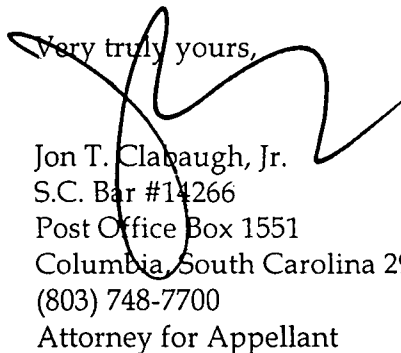 Very truly yours,
Jon T. Clabaugh, Jr.
S.C. Bar #14266
Post Office Box 1551
Columbia, South Carolina 29
(803) 748-7700
Attorney for Appellant